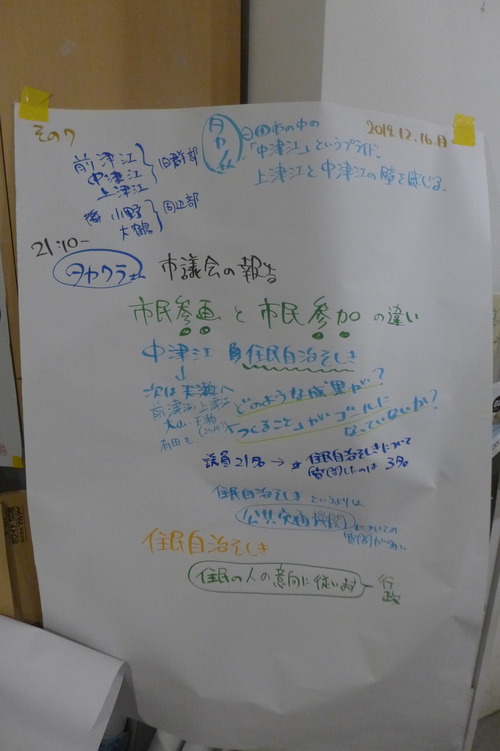 その7
2019.12.16.月
日田市の中の
「中津江」というプライド。
上津江と中津江の壁を感じる。
前津江
中津江
上津江
旧郡部
小野
大鶴
周辺部
21:10~
タカクラ
市議会の報告
市民参画と市民参加の違い
中津江 住民自治そしき
↓
次は天瀬へ
前津江、上津江
大山、
有田も
どのような成果が?
「つくること」がゴールに
なっていないか?
議員21名→
住民自治そしきについて
3名
住民自治そしきというよりは
公共実施機関
についての
住民自治そしき
住民の人の意向に従います
行政